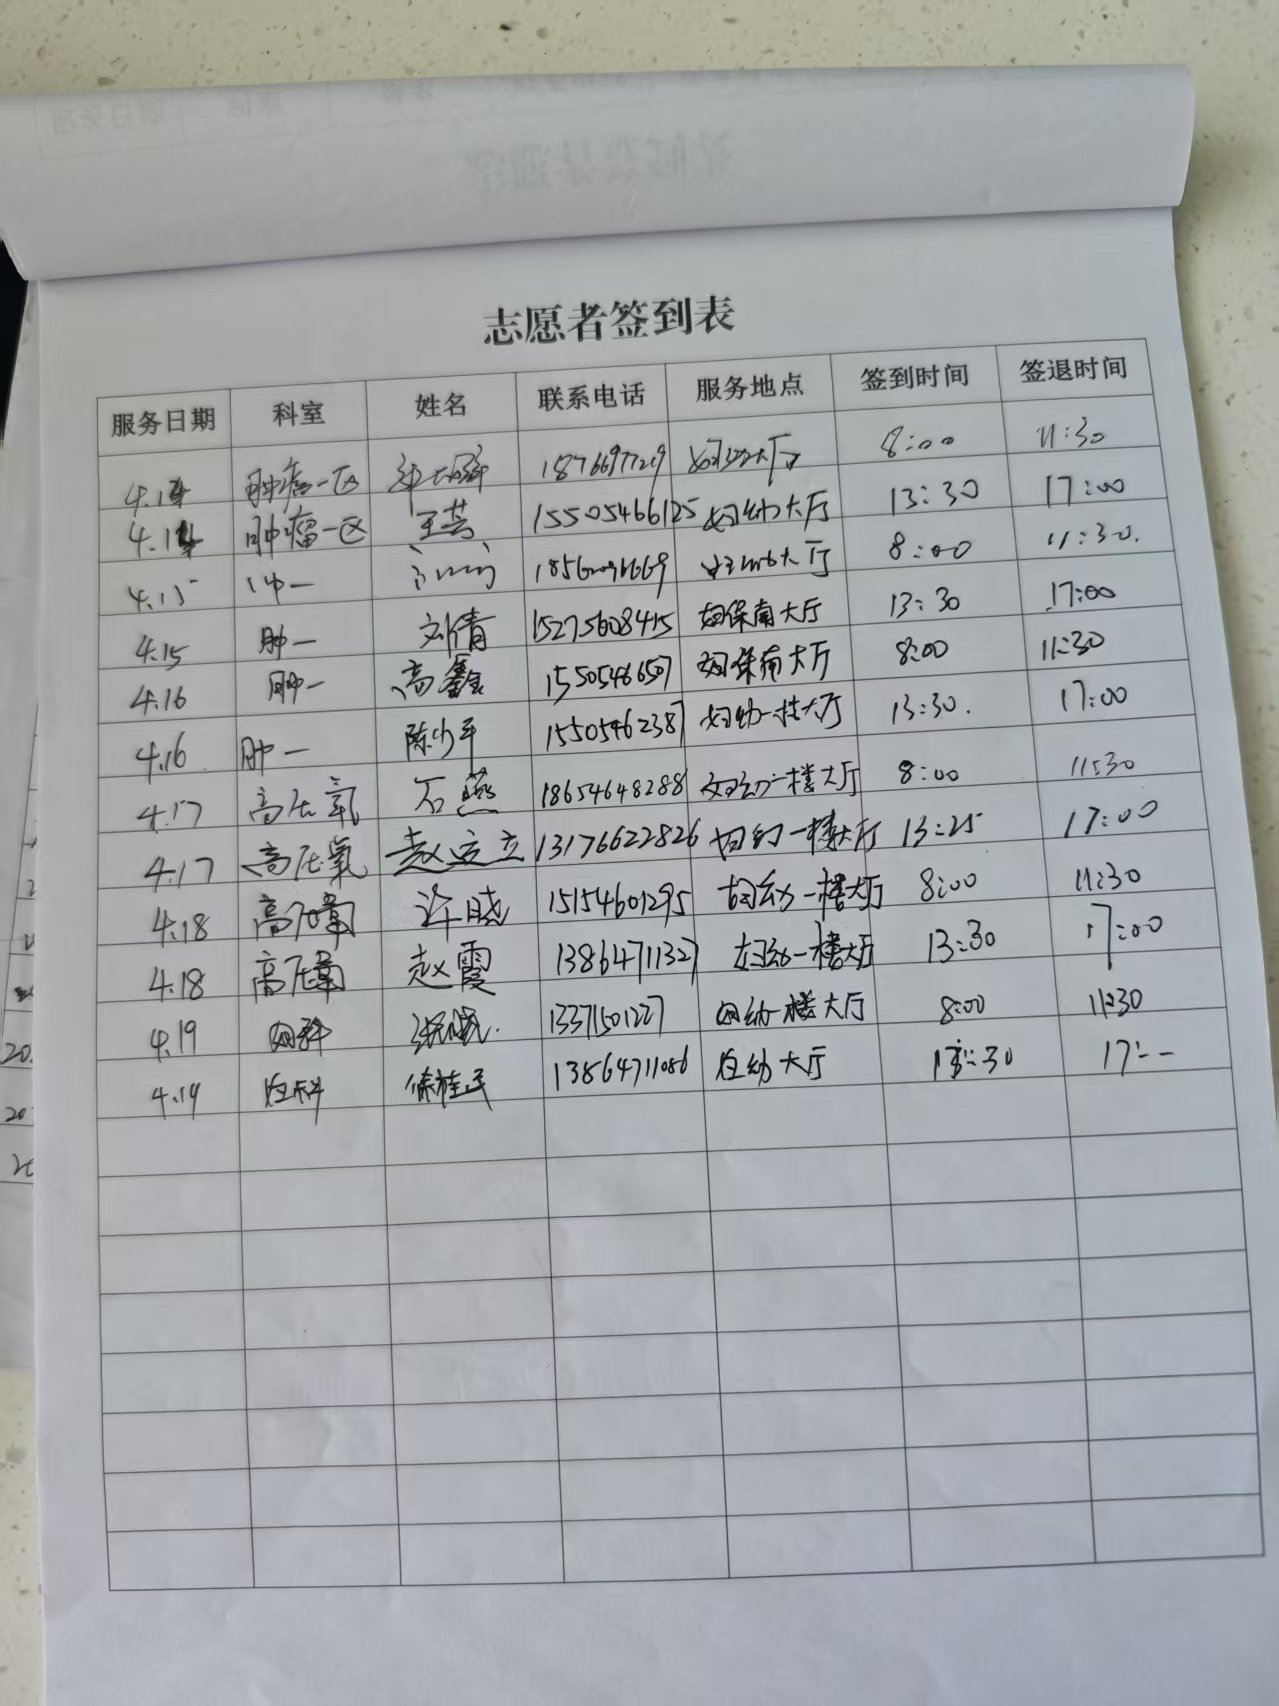 志愿者签到表
服务日期 科室 姓名 联系电话 服务地点 签到时间 签退时间
4.14 肿瘤一区 18766977219 妇幼大厅 8:00 11:30
4.14 肿瘤一区 王芸 15505466125 妇幼大厅 13:30 17:00
4.15 肿一 大厅 8:00 11:30.
4.15 肿一 刘倩 15275608415 妇保南大厅 13:30 17:00
4.16 肿一 高鑫 15505466507 妇保南大厅 8:00 11:30
4.16 肿一 陈少平 15505462387 妇幼一楼大厅 13:30. 17:00
4.17 高压氧 石燕 18654648288 妇幼一楼大厅 8:00 11:30
4.17 高压氧 赵立 13176622826 妇幼一楼大厅 13:25 17:00
4.18 高压氧 许晓 15154601295 妇幼一楼大厅 8:00 11:30
4.18 高压氧 赵霞 13864711327 妇幼一楼大厅 13:30 17:00
4.19 妇科 13371501227 妇幼一楼大厅 8:00 11:30
4.19 妇科 徐桂民 13864711086 妇幼大厅 13:30 17:--